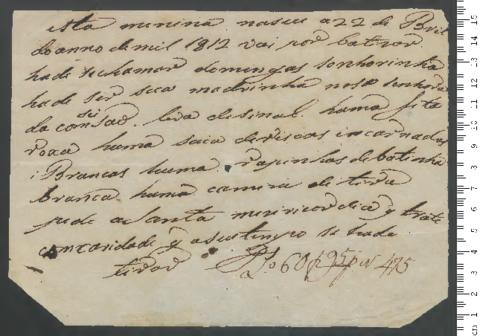 esta menina nasceu a 22 de Bril
do anno de mil 1812 vai por batizar
hade se chamar domingas senhorinha
hade ser sua madrinha nosa senhora
da consisao. leva de sinal. huma fita
roxa huma saia de riscas incarnadas
i Brancas huma. de batinha
branca huma camiza de
pede a Santa mizericordia q trate
com caridade q a seu tempo se hade
tirar